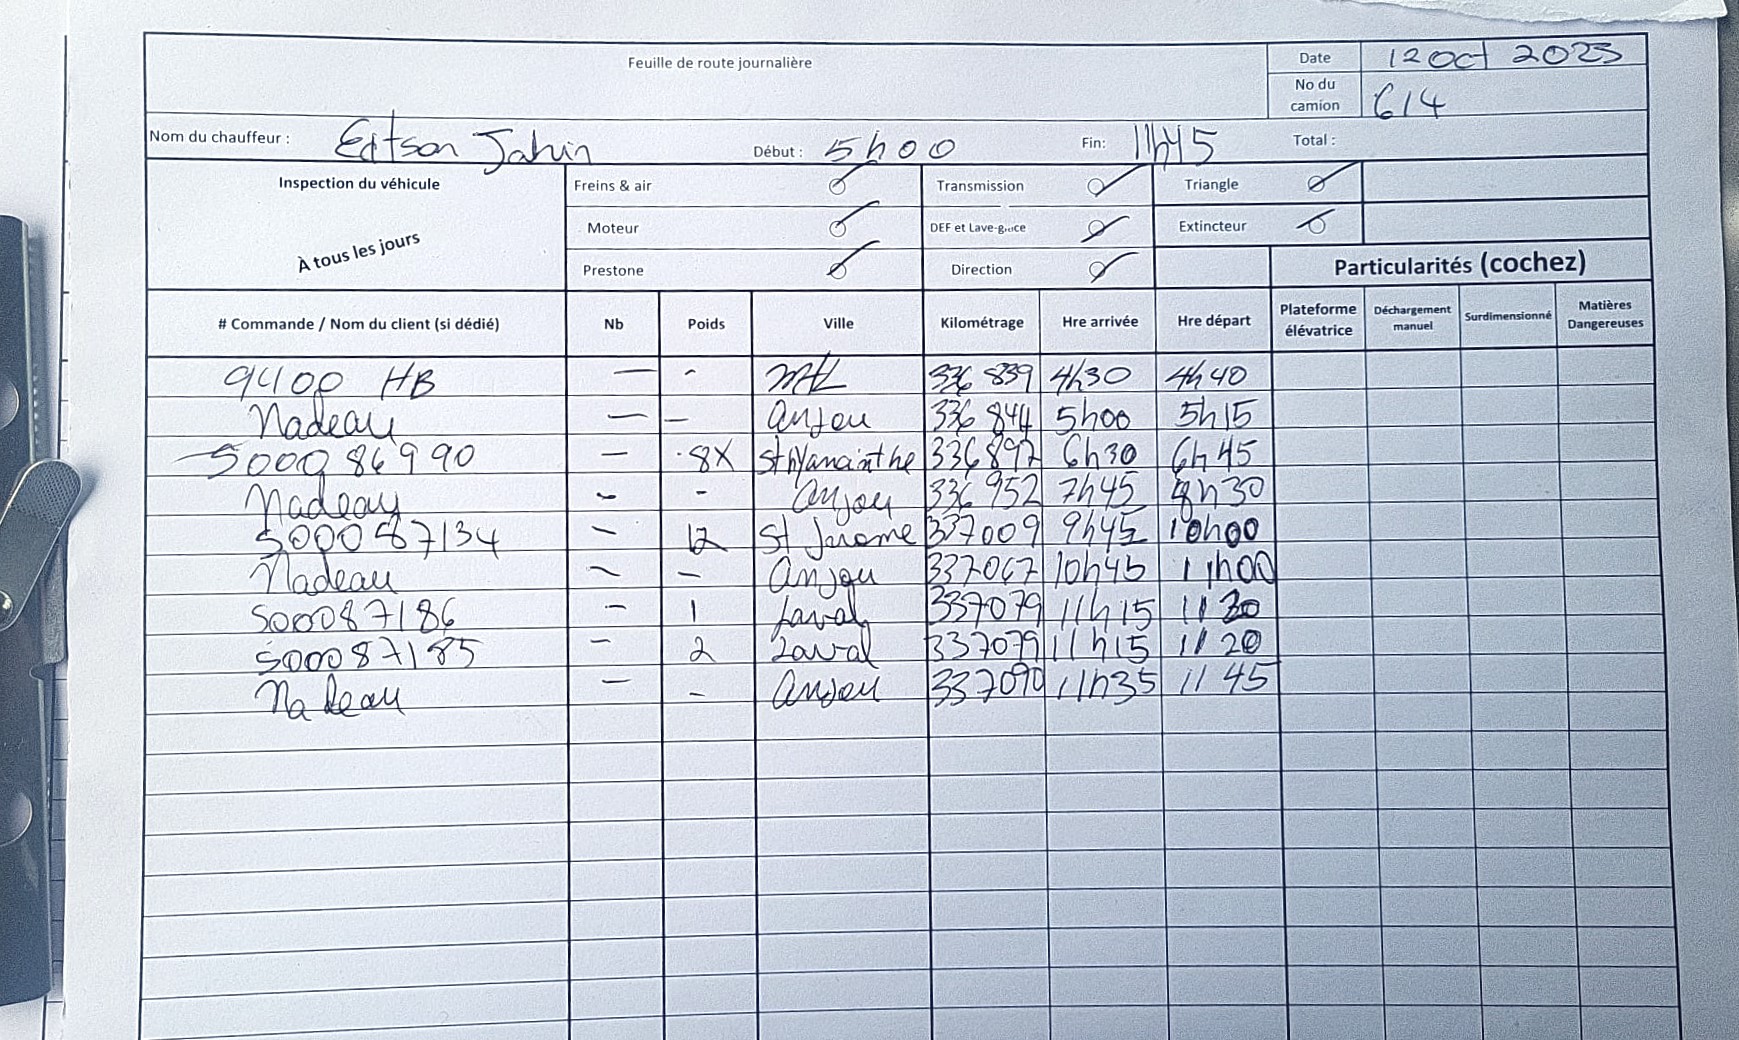 Feuille de route journalière
Date 12 Oct 2023
No du camion 614
Nom du chauffeur : Edtson Jahin Début : 5h00 Fin: 11h45 Total :
Inspection du véhicule
À tous les jours
Freins & air Transmission Triangle
Moteur DEF et Lave-glace Extincteur
Prestone Direction
Particularités (cochez)
# Commande / Nom du client (si dédié) Nb Poids Ville Kilométrage Hre arrivée Hre départ Plateforme élévatrice Déchargement manuel Surdimensionné Matières Dangereuses
9400 HB — - Mtl 336 839 4h30 4h40
Nadeau — — Anjou 336 844 5h00 5h15
500086990 — 8X St hyancinthe 336897 6h30 6h45
Nadeau - - Anjou 336 952 7h45 8h30
500087134 - 12 St Jerome 337009 9h45 10h00
Nadeau - — Anjou 337067 10h45 11h00
500087186 - 1 Laval 337079 11h15
500087185 - 2 Laval 337079 11h15 11 20
Nadeau — - Anjou 337090 11h35 11 45